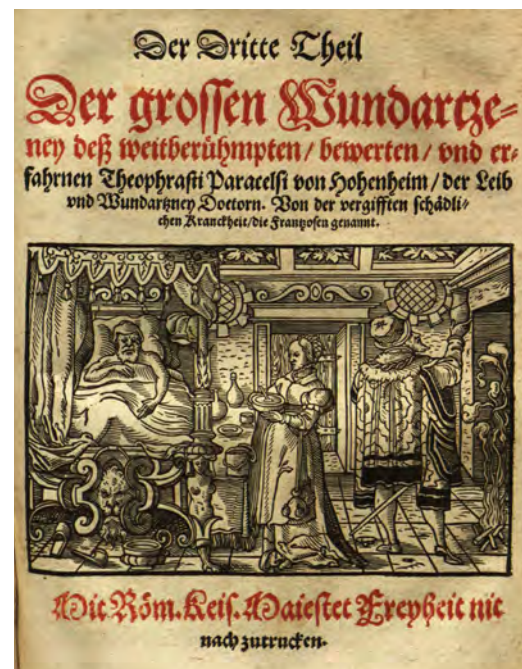 Der Dritte Theil
Der grossen Wundartze-
ney deß weitberühmpten / bewerten / vnd er-
fahrnen Theophrasti Paracelsi von Hohenheim / der Leib
vnd Wundartzney Doctorn. Von der vergifften schädli-
chen Kranckheit / die Frantzosen genannt.
Mit Röm. Keis. Maiestet Freyheit nit
nach zutrucken.